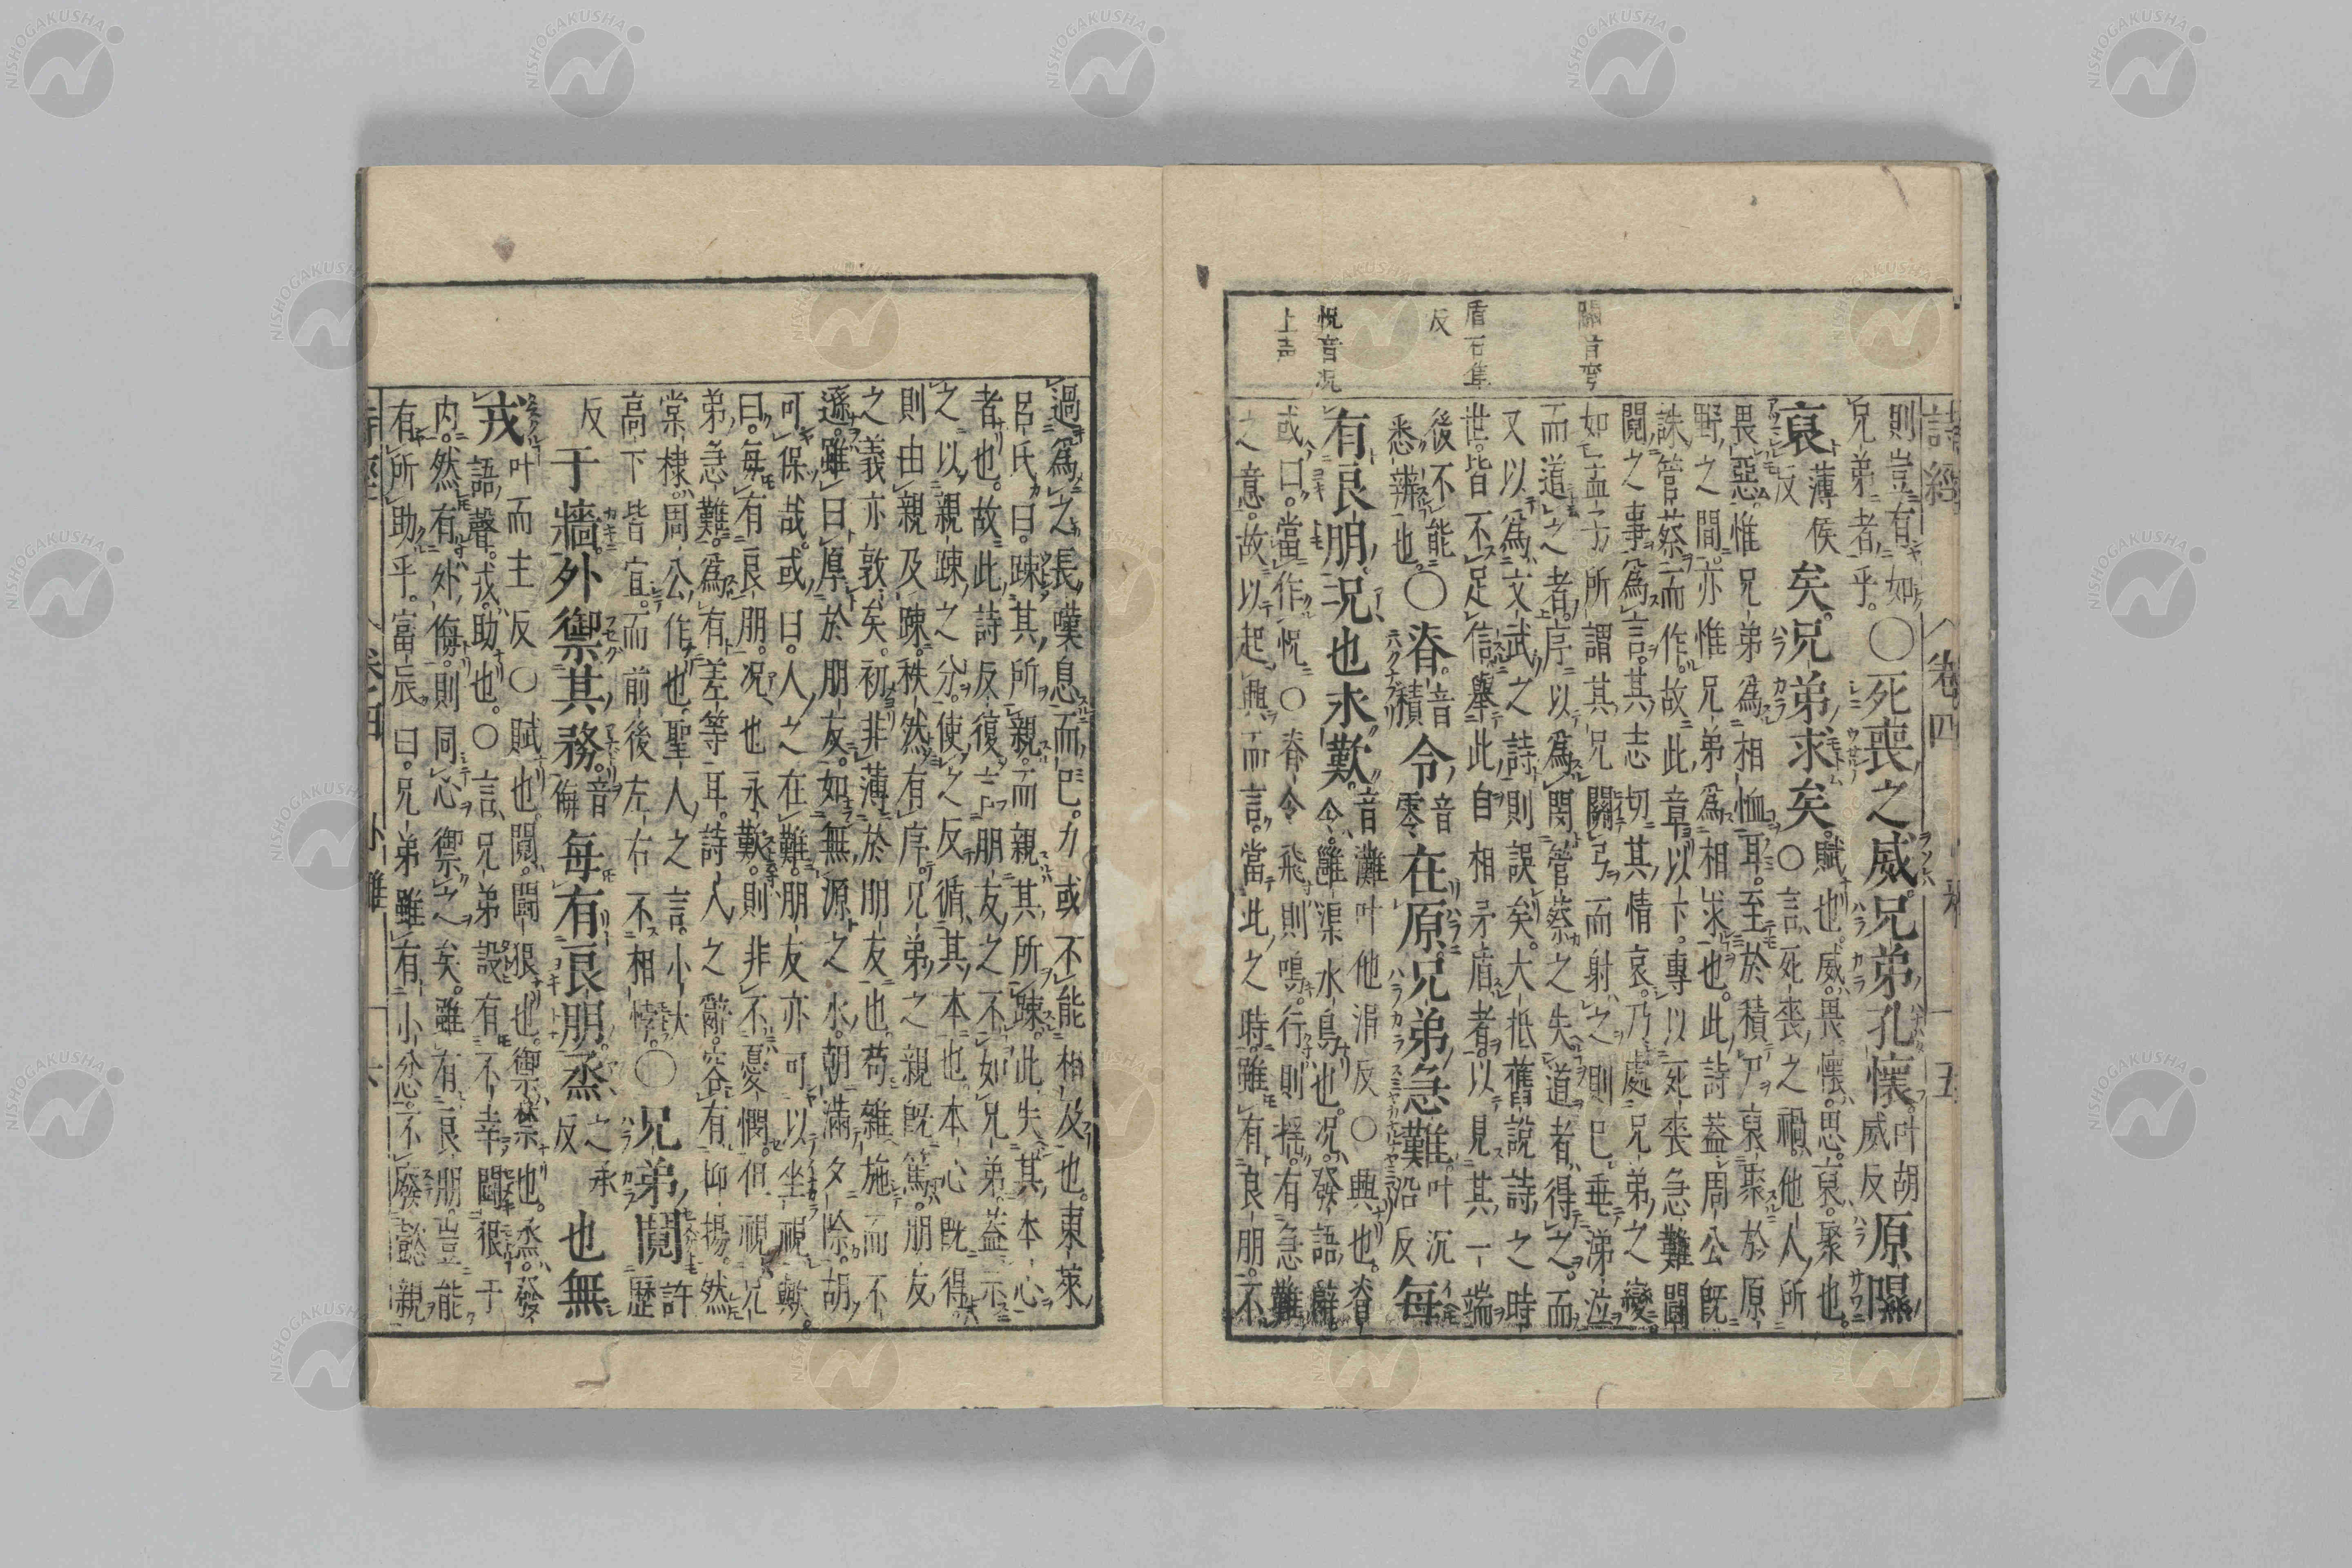 詩經 卷四 一五
則豈有如
兄弟者乎。
○死喪之威。兄弟孔懷。叶胡威反 原隰
裒薄侯反矣。兄弟求矣。賦也。威、畏。懷、思。裒、聚也。
○言、死喪之禍、他人所
畏惡。惟兄弟為相恤耳。至於積尸裒聚於原
野之間。亦惟兄弟為相求也。此詩蓋周公既
誅管蔡而作。故此章以下。專以死喪急難鬪
鬩之事為言。其志切其情哀。乃處兄弟之變。
如孟子所謂其兄關弓而射之則已垂涕泣
而道之者。序以為閔管蔡之失道者、得之。而
又以為文武之詩則誤矣。大抵舊說詩之時
世。皆不足信。舉此自相矛盾者。以見其一端
後不能
悉辨也
○脊音積令音零在原。兄弟急難。叶沉沿反每
有良朋。況也永歎。音灘叶他涓反○興也。脊
令、雝渠水鳥也。況、發語辭
或曰。當作怳○脊令飛則鳴。行則搖。有急難
之意。故以起興而言。當此之時。雖有良朋。不
怳音况
上声
過為之長嘆息而已。力或不能相及也。東萊
呂氏曰。踈其所親。而親其所踈。此失其本心
者也。故此詩反復言朋友之不如兄弟。蓋示
之以親踈之分。使之反循其本也。本心既得
則由親及踈。秩然有序。兄弟之親既篤。朋友
之義亦敦矣。初非薄於朋友也。苟雜施而不
遜。雖曰厚於朋友。如無源之水。朝滿夕除。胡
可保哉。或曰。人之在難。朋友亦可以坐視歟。
曰。每有良朋。況也永歎。則非不憂憫。但視兄
弟急難。為有差等耳。詩人之辭。容有抑揚。然
棠棣、周公作也。聖人之言。小大
高下皆宜。而前後左右不相悖。
○兄弟鬩許歷
反于牆。外禦其務。音侮每有良朋。烝之承反也無
戎叶而主反○賦也。鬩、鬪狠也。禦、禁也。烝。發
語聲。戎、助也。○言、兄弟設有不幸鬪狠于
內。然有外侮。則同心禦之矣。雖有良朋。豈能
有所助乎。富辰曰。兄弟雖有小忿。不廢懿親